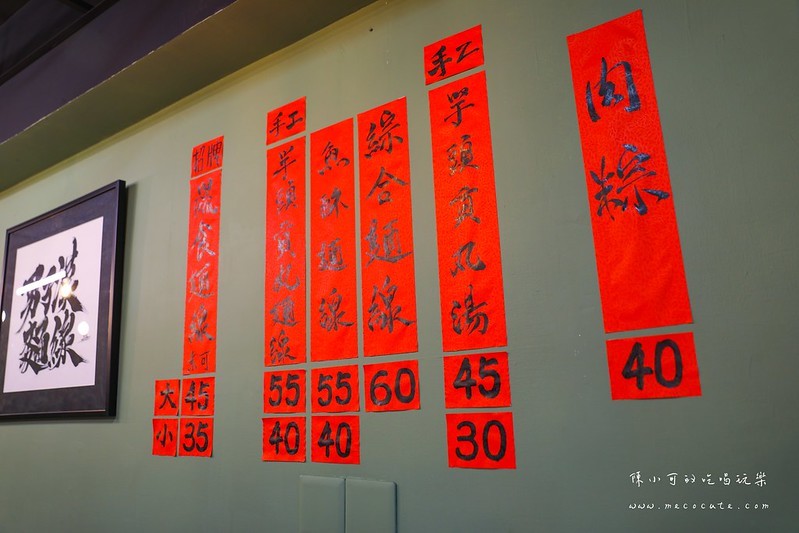 漢男
麵線
招牌
大 45
小 35
手工
芋頭貢丸麵線
55
40
魚酥麵線
55
40
綜合麵線
60
手工
芋頭貢丸湯
45
30
肉粽
40
陳小可的吃喝玩樂
www.mecocute.com